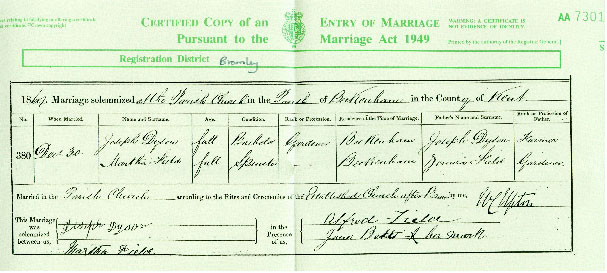 CERTIFIED COPY of an ENTRY OF MARRIAGE
Pursuant to the Marriage Act 1949
WARNING: A CERTIFICATE IS NOT EVIDENCE OF IDENTITY.
AA 7301
Printed by authority of the Registrar General.
Registration District Bromley
1867. Marriage solemnized at the Parish Church in the Parish of Beckenham in the County of Kent
No. When Married. Name and Surname. Age. Condition. Rank or Profession. Residence at the Time of Marriage. Father's Name and Surname. Rank or Profession of Father.
380 Dec 30 Joseph Dyson full Bachelor Gardener Beckenham Joseph Dyson Farmer
Martha Fielde full Spinster Beckenham Fielde Gardener
Married in the Parish Church according to the Rites and Ceremonies of the Established Church after Banns by me,
This Marriage was solemnized between us, Joseph Dyson
Martha Fielde
in the Presence of us, Alfred Fielde
Jane Botts X her mark